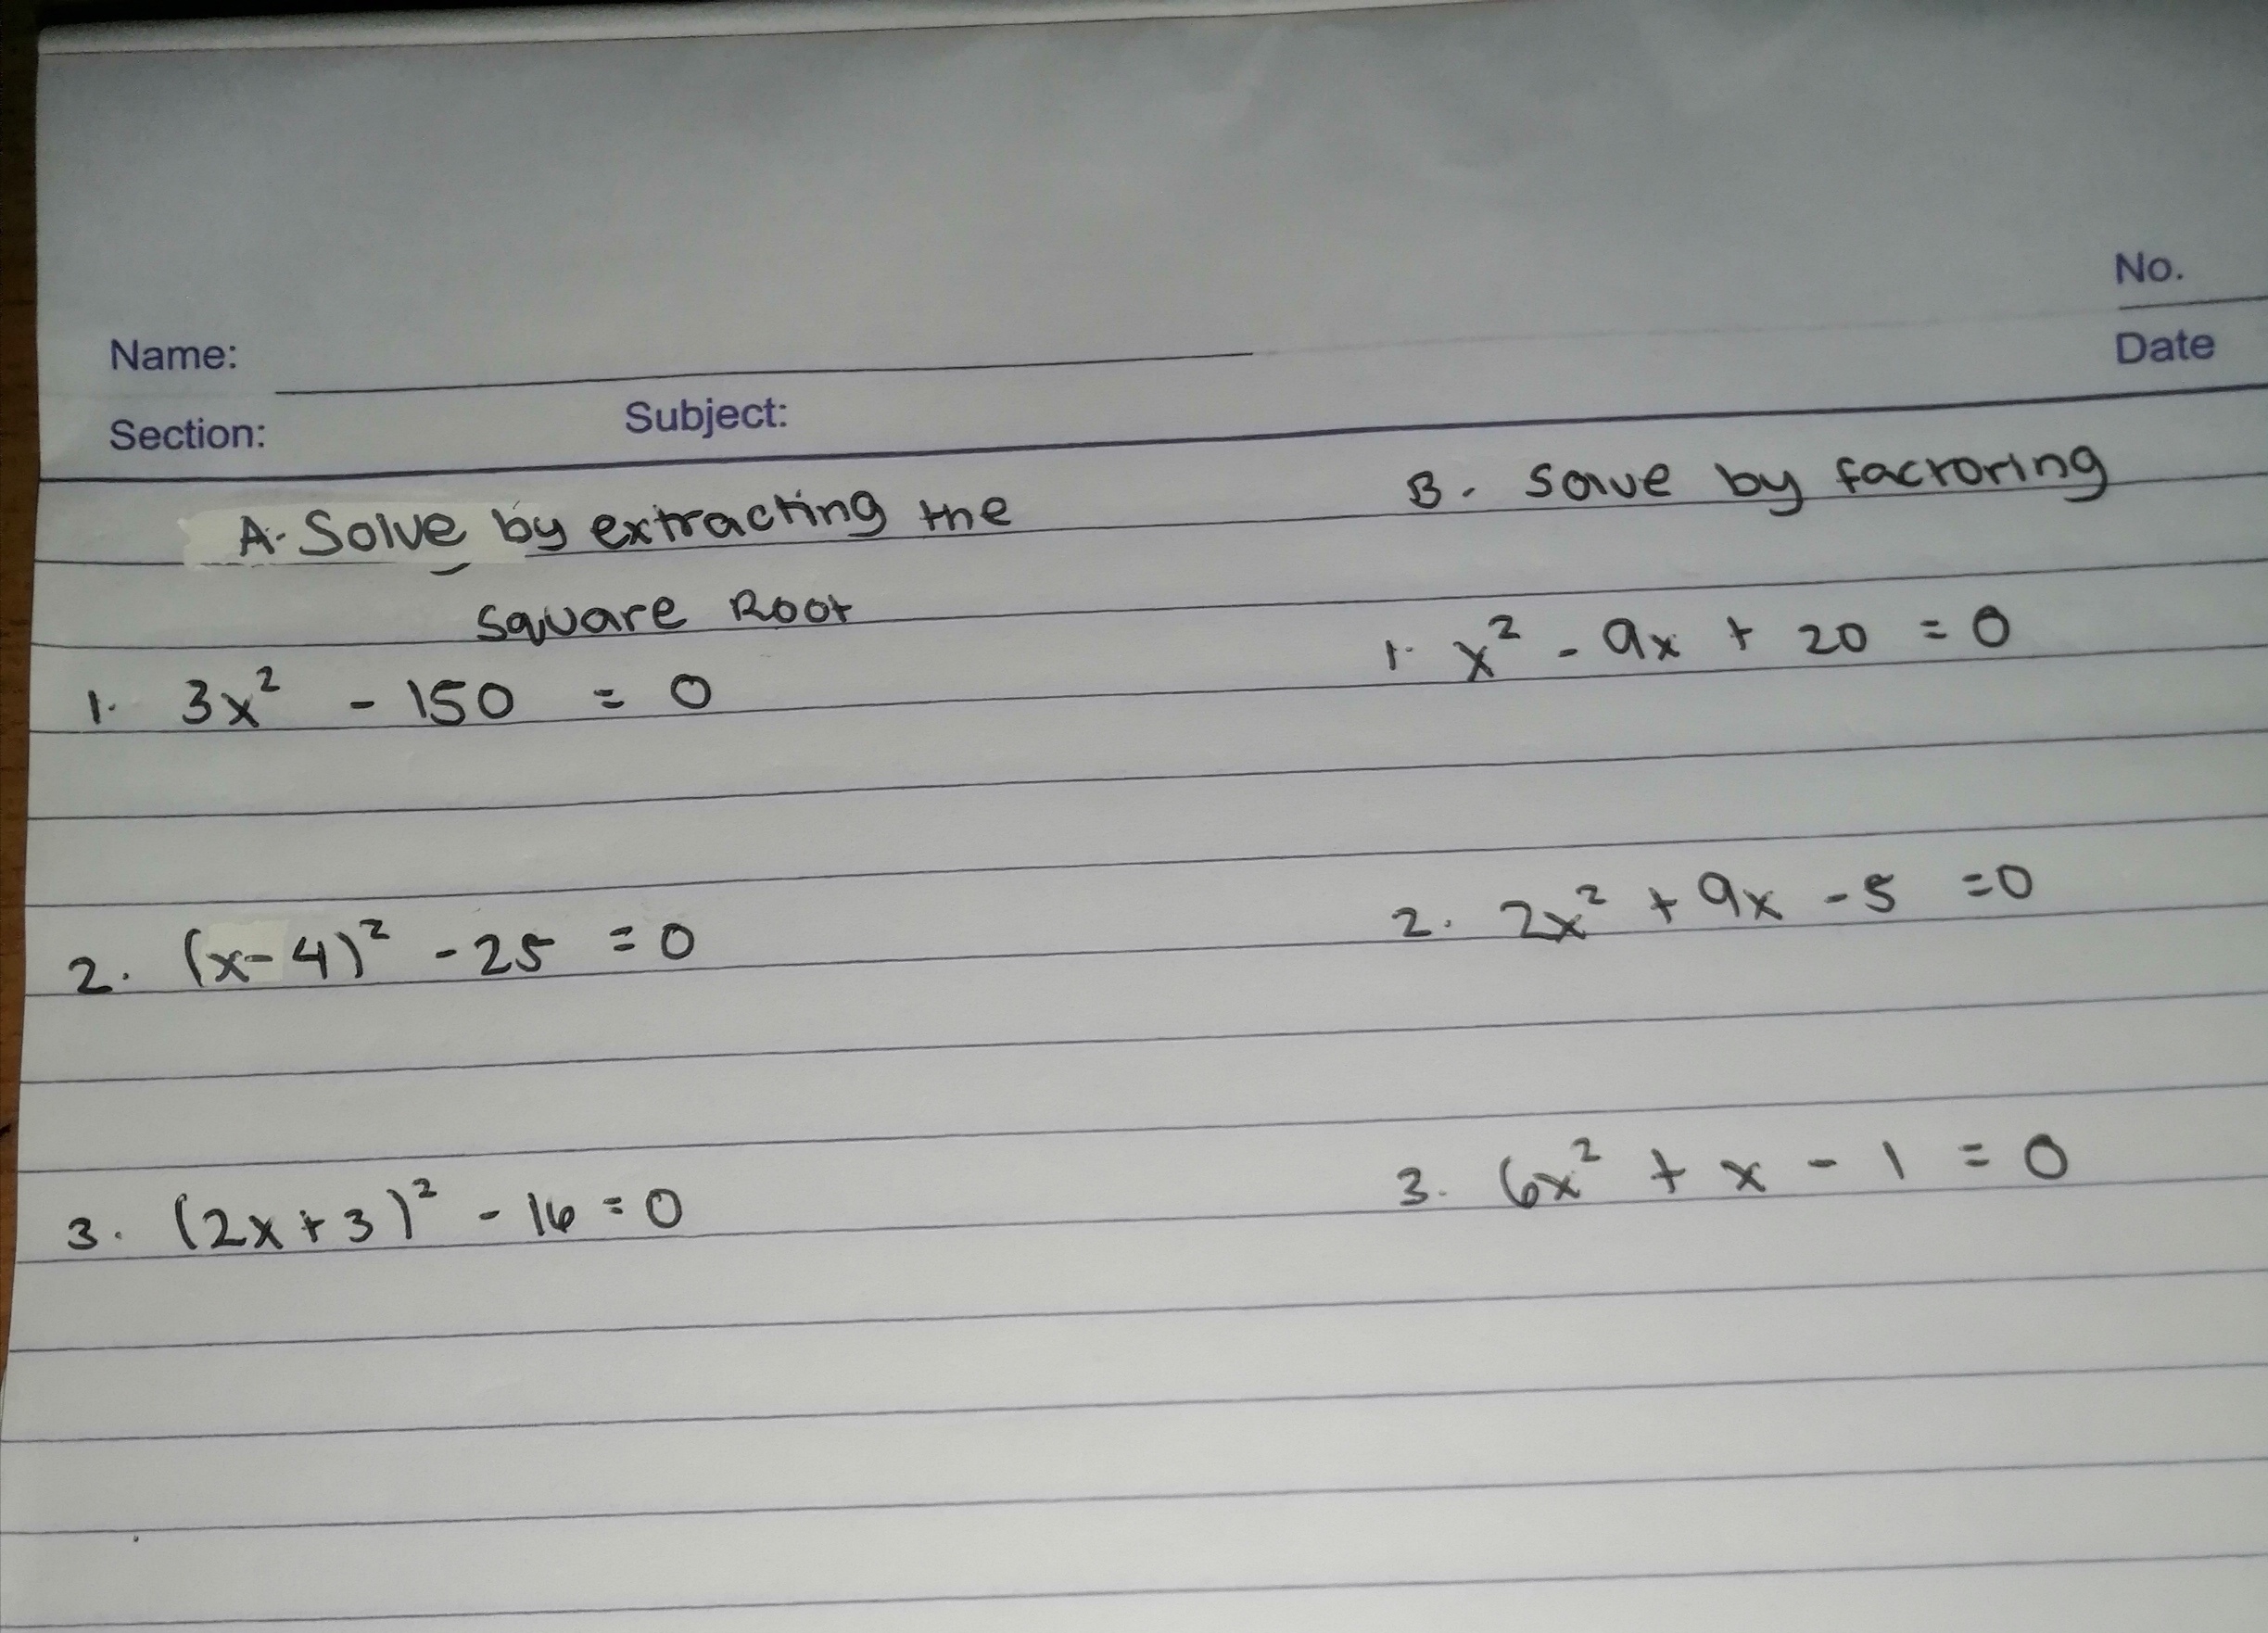 No.
Name:
Date
Section: Subject:
A. Solve by extracting the
Square Root
1. 3x² - 150 = 0
2. (x-4)² - 25 = 0
3. (2x+3)² - 16 = 0
B. Solve by factoring
1. x² - 9x + 20 = 0
2. 2x² + 9x - 5 = 0
3. 6x² + x - 1 = 0